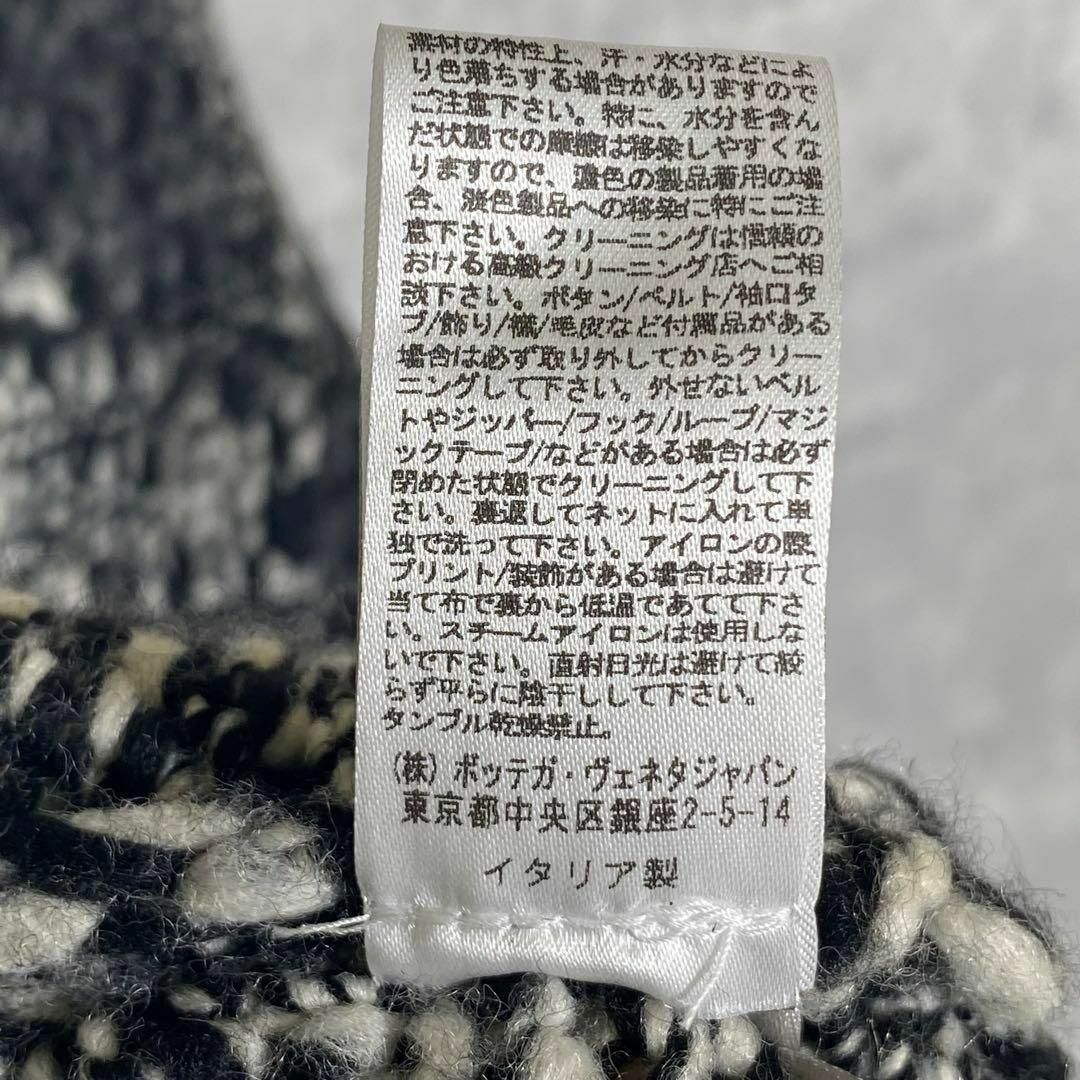 素材の特性上、汗・水分などによ
り色落ちする場合がありますので
ご注意下さい。特に、水分を含ん
だ状態での摩擦は移染しやすくな
りますので、濃色の製品着用の場
合、淡色製品への移染に特にご注
意下さい。クリーニングは信頼の
おける高級クリーニング店へご相
談下さい。ボタン/ベルト/袖口タ
ブ/飾り/襟/毛皮など付属品がある
場合は必ず取り外してからクリー
ニングして下さい。外せないベル
トやジッパー/フック/ループ/マジ
ックテープ/などがある場合は必ず
閉めた状態でクリーニングして下
さい。裏返してネットに入れて単
独で洗って下さい。アイロンの際、
プリント/装飾がある場合は避けて
当て布で裏から低温であてて下さ
い。スチームアイロンは使用しな
いで下さい。直射日光は避けて絞
らず平らに陰干しして下さい。
タンブル乾燥禁止。
(株) ボッテガ・ヴェネタジャパン
東京都中央区銀座2-5-14
イタリア製